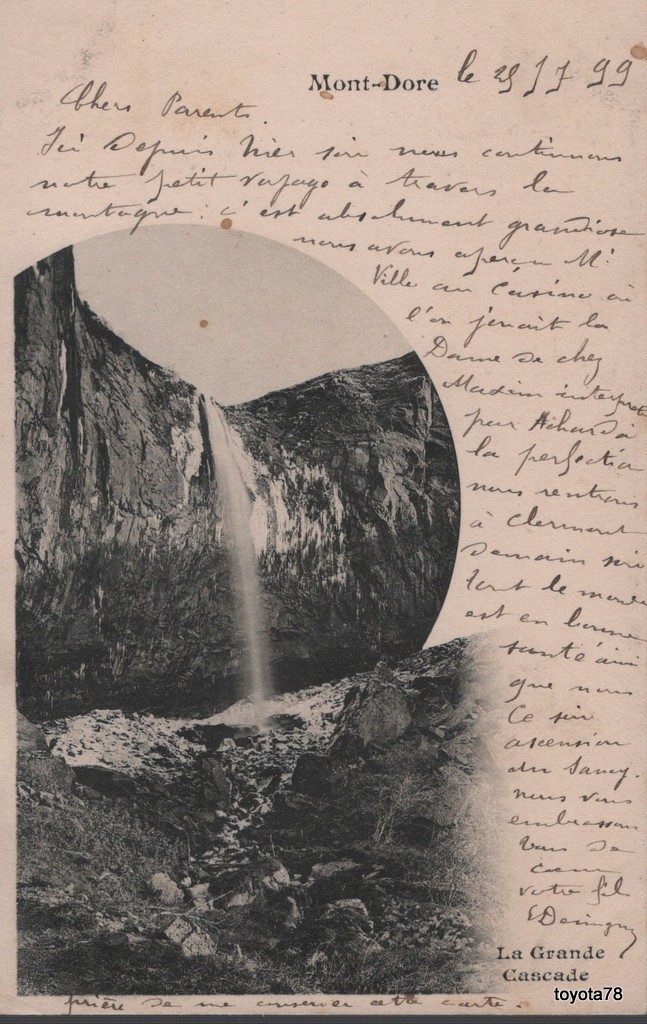 Mont-Dore le 29/7 99
Chers Parents.
Ici Depuis hier soir nous continuons
notre petit voyage à travers la
montagne : c'est absolument grandiose
nous avons aperçu Mr
Ville au Casino où
l'on jouait la
Dame de chez
Maxim interprété
par Achard à
la perfection
nous rentrons
à Clermont
demain soir
tout le monde
est en bonne
santé ainsi
que nous
Ce soir
ascension
du Sancy.
nous vous
embrassons
tous de
coeur
votre fils
La Grande
Cascade
toyota78
prière de me conserver cette carte.